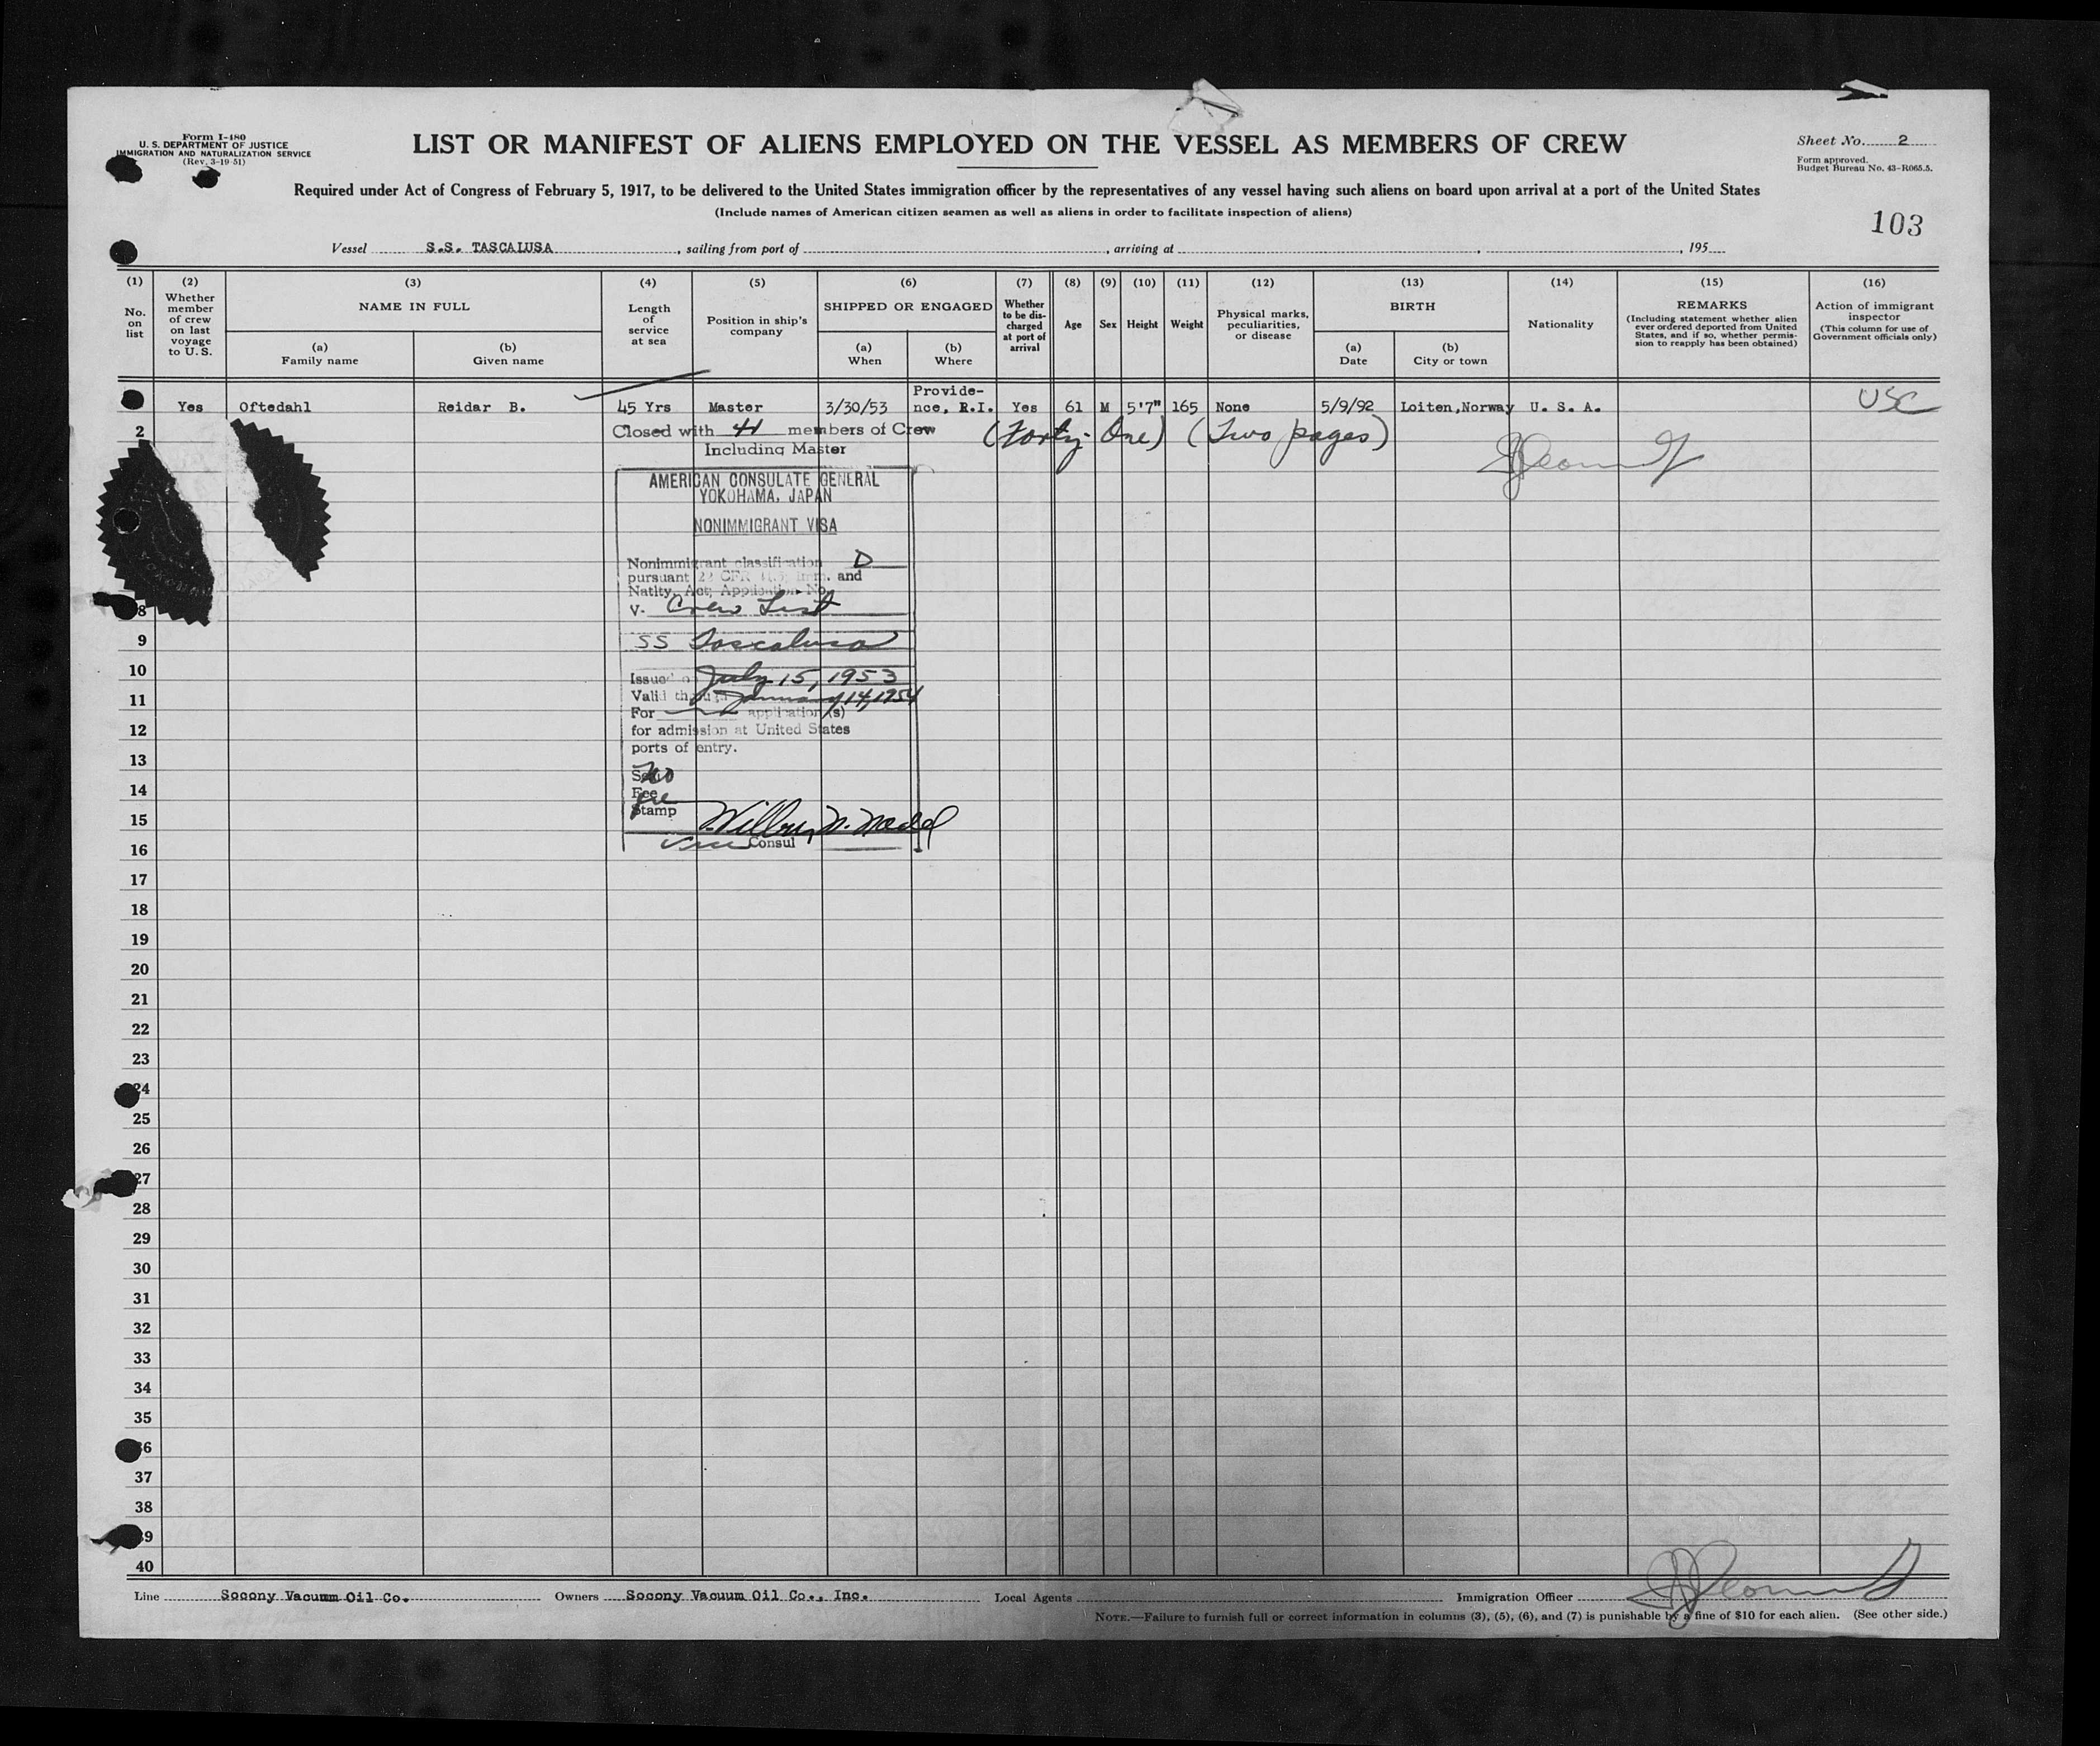 Form I-480
U. S. DEPARTMENT OF JUSTICE
IMMIGRATION AND NATURALIZATION SERVICE
(Rev. 3-19-51)
LIST OR MANIFEST OF ALIENS EMPLOYED ON THE VESSEL AS MEMBERS OF CREW
Sheet No. 2
Form approved.
Budget Bureau No. 43-R065.5.
Required under Act of Congress of February 5, 1917, to be delivered to the United States immigration officer by the representatives of any vessel having such aliens on board upon arrival at a port of the United States
(Include names of American citizen seamen as well as aliens in order to facilitate inspection of aliens)
103
Vessel S.S. TASCALUSA, sailing from port of , arriving at , , 195
(1) (2) (3) (4) (5) (6) (7) (8) (9) (10) (11) (12) (13) (14) (15) (16)
No. on list
Whether member of crew on last voyage to U. S.
NAME IN FULL
(a) Family name
(b) Given name
Length of service at sea
Position in ship's company
SHIPPED OR ENGAGED
(a) When
(b) Where
Whether to be discharged at port of arrival
Age
Sex
Height
Weight
Physical marks, peculiarities, or disease
BIRTH
(a) Date
(b) City or town
Nationality
REMARKS
(Including statement whether alien ever ordered deported from United States, and if so, whether permission to reapply has been obtained)
Action of immigrant inspector
(This column for use of Government officials only)
Yes Oftedahl Reidar B. 45 Yrs Master 3/30/53 Provide-nce, R.I. Yes 61 M 5'7" 165 None 5/9/92 Loiten,Norway U. S. A. USC
2 Closed with 41 members of Crew (Forty-One) (Two pages)
Including Master
AMERICAN CONSULATE GENERAL
YOKOHAMA, JAPAN
NONIMMIGRANT VISA
Nonimmigrant classification D
pursuant 22 CFR and
Natlty. Act; Application No.
V- Crew List
SS Tascalusa
Issued on July 15, 1953
Valid through January 14, 1954
For application(s)
for admission at United States
ports of entry.
Seal
No
Fee
Stamp
Vice Consul
8
9
10
11
12
13
14
15
16
17
18
19
20
21
22
23
24
25
26
27
28
29
30
31
32
33
34
35
36
37
38
39
40
Line Socony Vacuum Oil Co. Owners Socony Vacuum Oil Co., Inc. Local Agents Immigration Officer
NOTE.—Failure to furnish full or correct information in columns (3), (5), (6), and (7) is punishable by a fine of $10 for each alien. (See other side.)